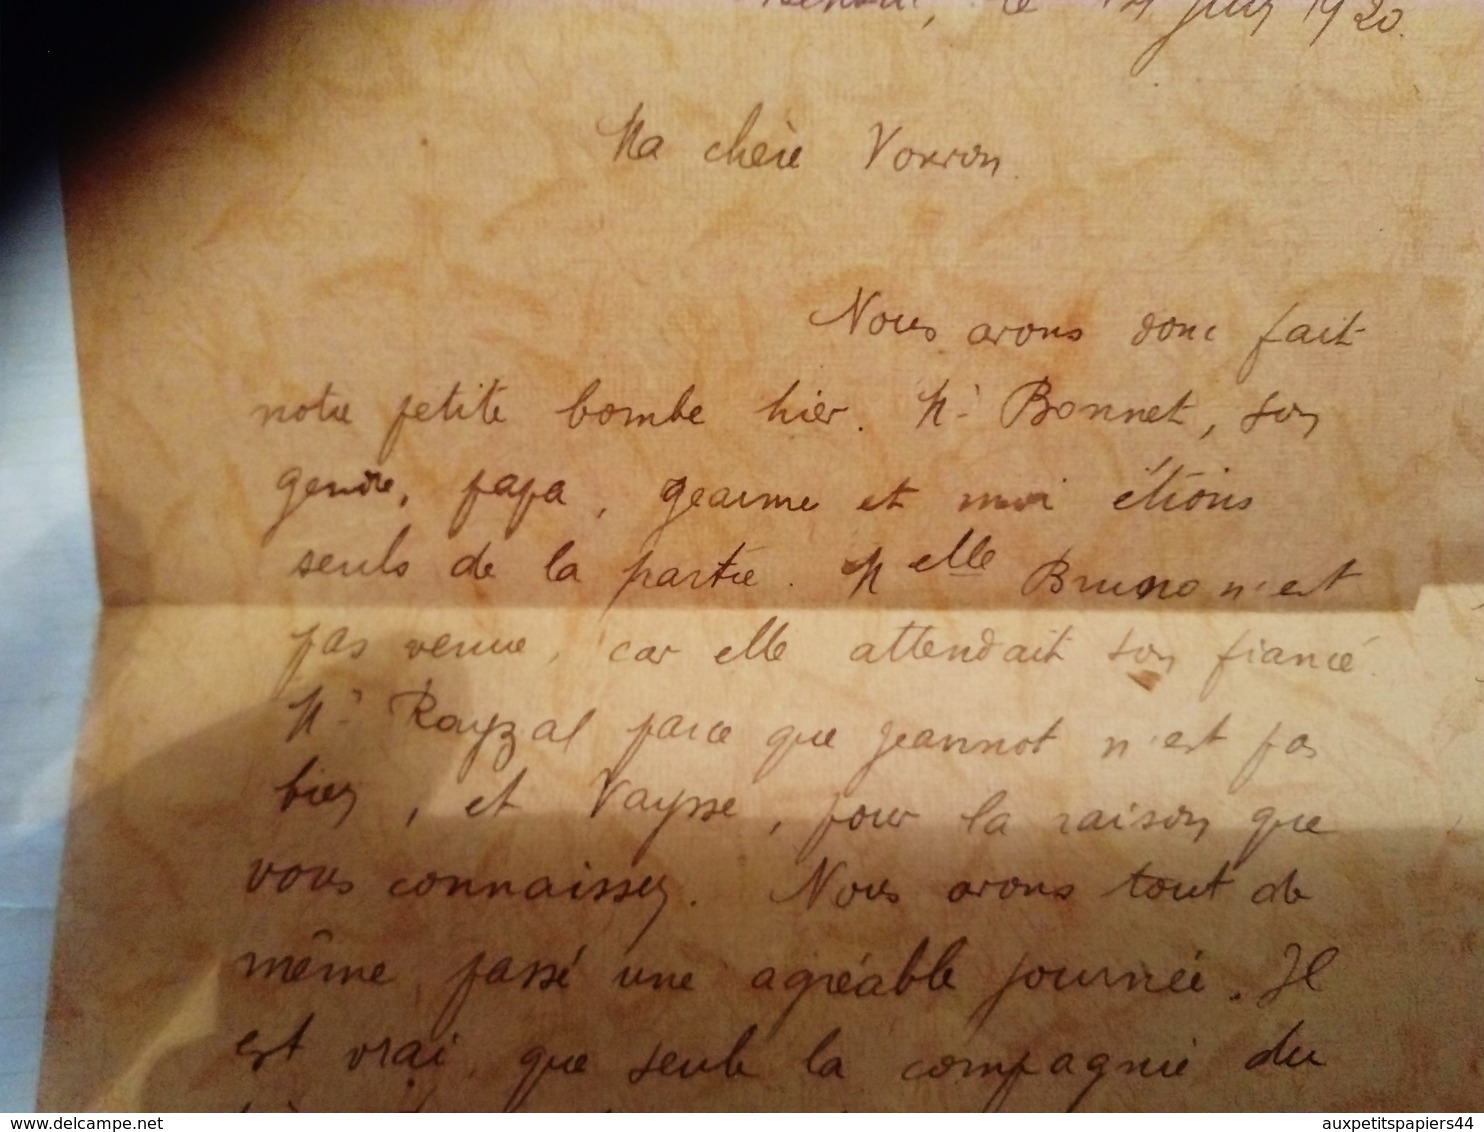 le 14 juin 1920.
Ma chère
Nous avons donc fait
notre petite bombe hier. Mr Bonnet, son
gendre, papa, et moi étions
seuls de la partie. Melle Bruno n'est
pas venue, car elle attendait son fiancé.
Mr Rayzal parce que Jeannot n'est pas
bien, et Vaysse, pour la raison que
vous connaissez. Nous avons tout de
même passé une agréable journée. Il
est vrai que seule la compagnie du
www.delcampe.net
auxpetitspapiers44